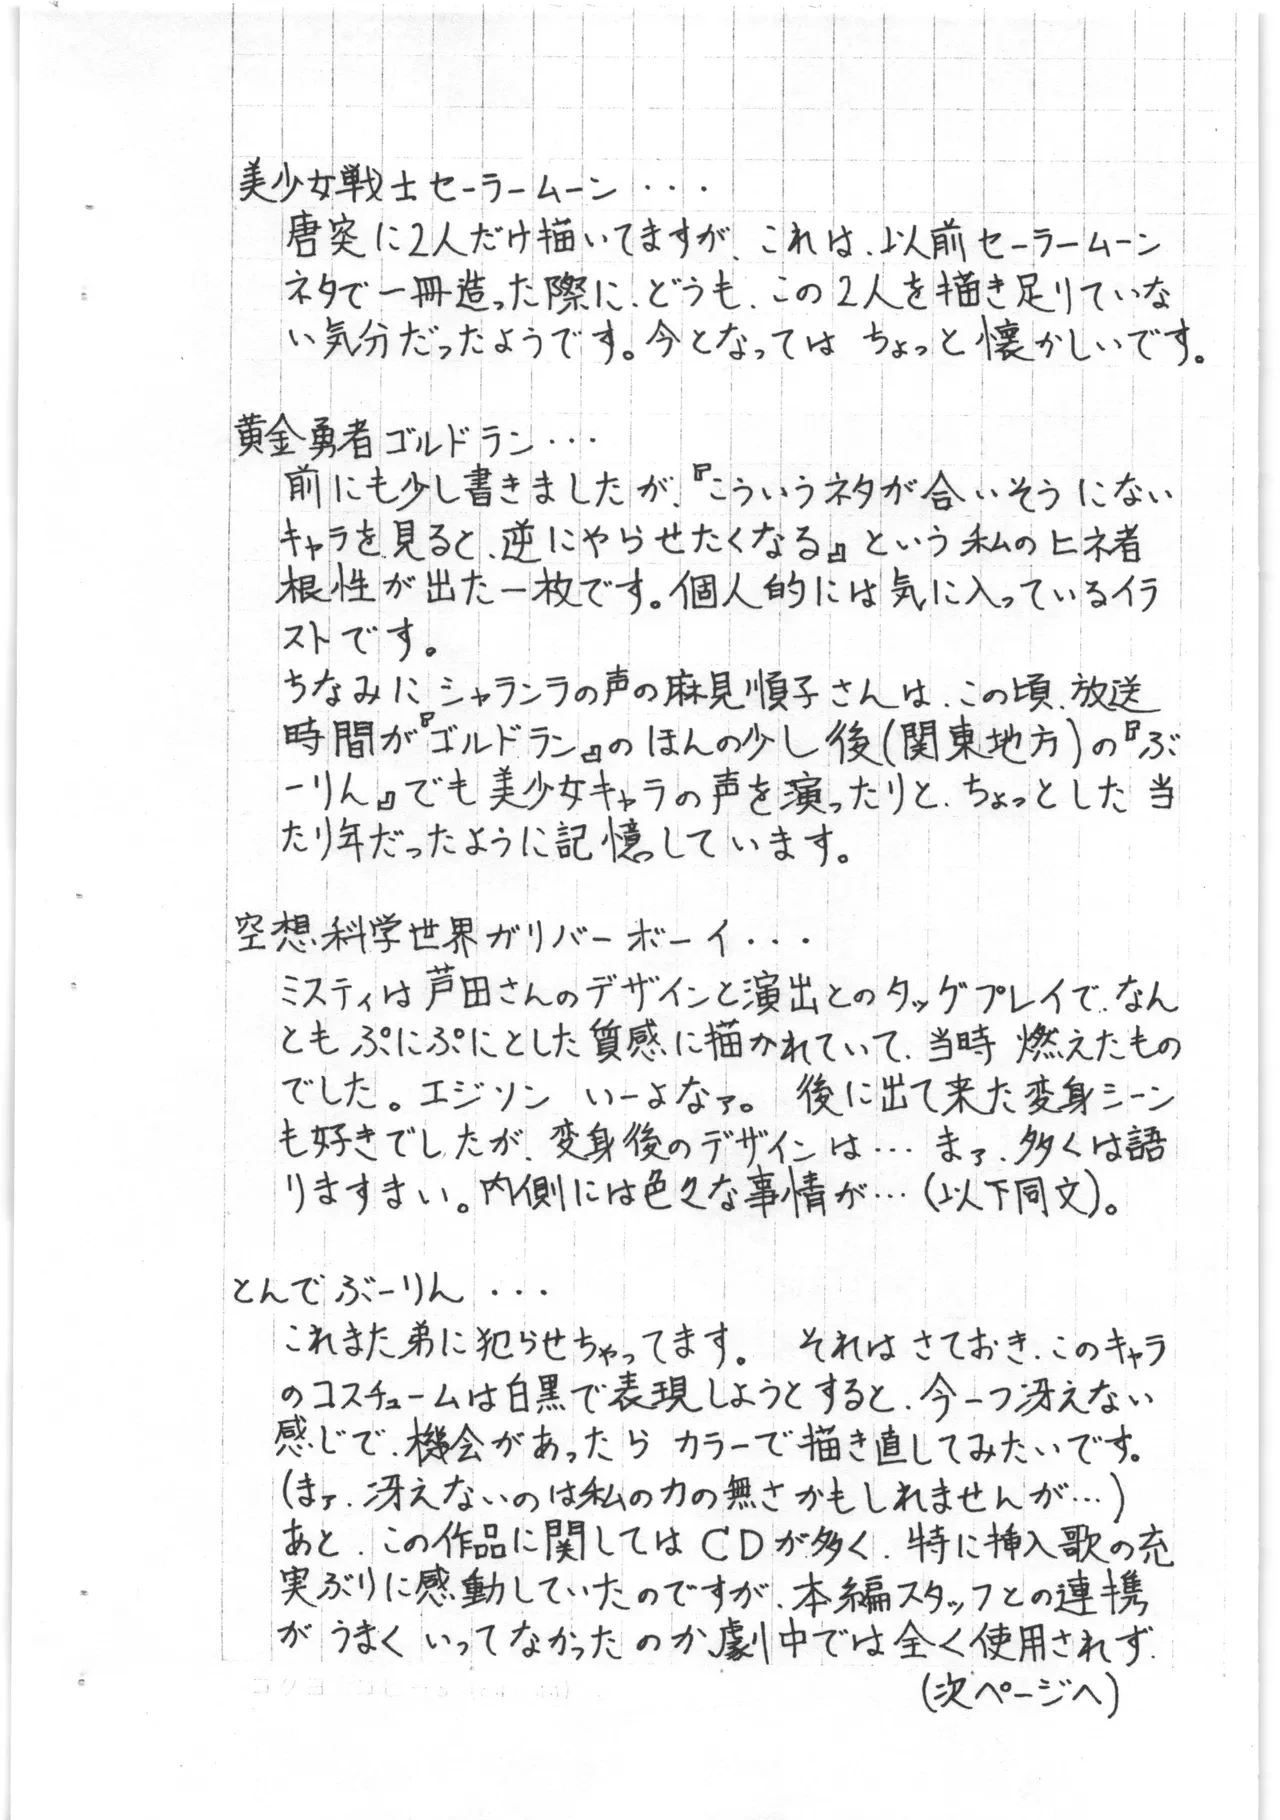 美少女戦士セーラームーン・・・
唐突に2人だけ描いてますが、これは、以前セーラームーン
ネタで一冊造った際に、どうも、この2人を描き足りていな
い気分だったようです。今となっては ちょっと懐かしいです。
黄金勇者ゴルドラン・・・
前にも少し書きましたが、『こういうネタが合いそうにない
キャラを見ると、逆にやらせたくなる』という私のヒネ者
根性が出た一枚です。個人的には気に入っているイラ
ストです。
ちなみにシャランラの声の麻見順子さんは、この頃、放送
時間が『ゴルドラン』のほんの少し後(関東地方)の『ぶ
ーりん』でも美少女キャラの声を演ったりと、ちょっとした当
たり年だったように記憶しています。
空想科学世界ガリバーボーイ・・・
ミスティは芦田さんのデザインと演出とのタッグプレイで、なん
とも ぷにぷにとした質感に描かれていて、当時 燃えたもの
でした。エジソン いーよなァ。 後に出て来た変身シーン
も好きでしたが、変身後のデザインは…まァ、多くは語
りますまい。内側には色々な事情が…(以下同文)。
とんでぶーりん・・・
これまた弟に犯らせちゃってます。 それはさておき、このキャラ
のコスチュームは白黒で表現しようとすると、今一つ冴えない
感じで、機会があったらカラーで描き直してみたいです。
(まァ、冴えないのは私の力の無さかもしれませんが…)
あと、この作品に関してはCDが多く、特に挿入歌の充
実ぶりに感動していたのですが、本編スタッフとの連携
がうまくいってなかったのか劇中では全く使用されず、
(次ページへ)